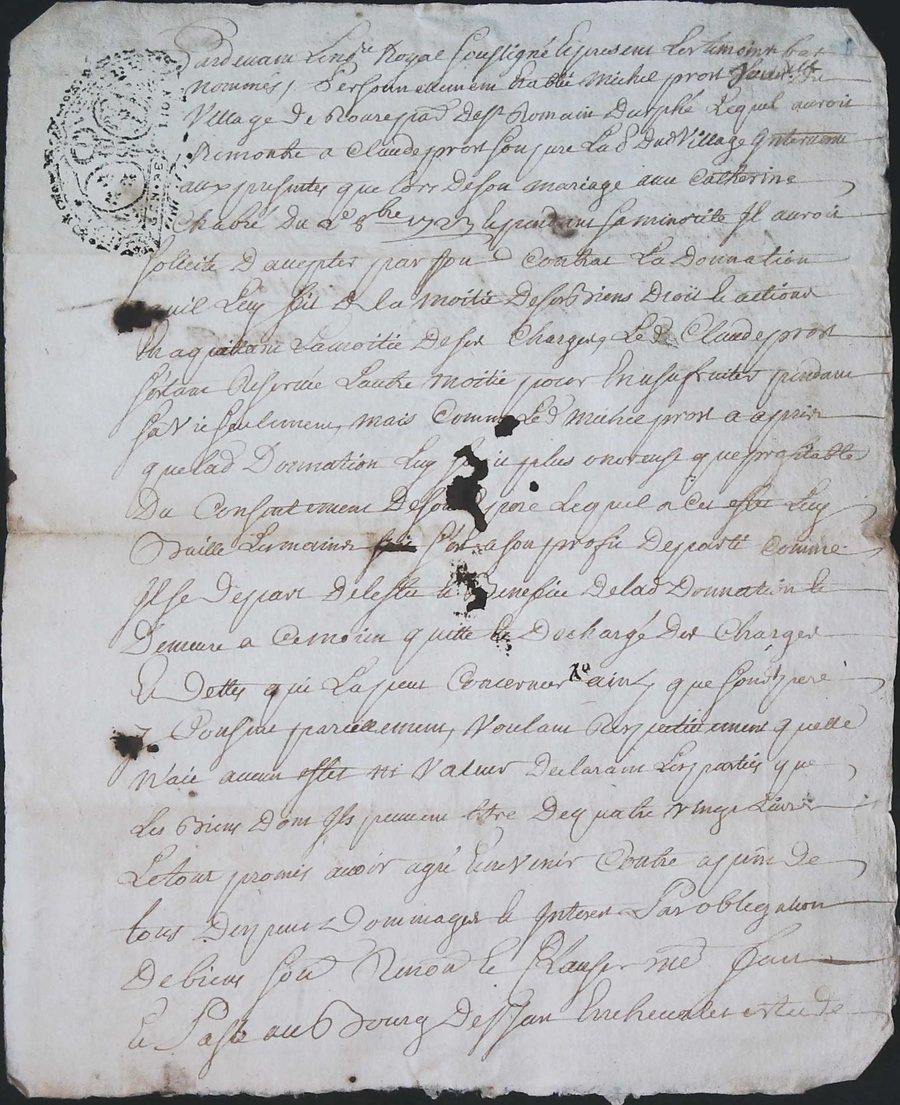 Pardevant Le no.re Royal Soussigné et present Les témoins bas
nommés, Personnellement Etably Michel prost du
Village De St Romain Durphé Lequel auroit
Remontré a Claude prost son pere La d. dud Village Intervenu
aux presentes que Lors De son mariage avec Catherine
Chabré Du 2e 8bre 1723 et pendant sa minorité Il auroit
solicité D'accepter par son d Contrat La Donnation
quil Luy fit De La moitié De ses Biens Droit et actions
En aquittant La moitié De ses Charges, Le d Claude prost
s'étant Reservée L'autre Moitié pour En usufruiter pendant
sa Vie seulement, Mais Comme Led Michel prost a apris
que lad Donnation Luy plus onereuse que profitable
Du Consentement De son pere Lequel a Cet effet Luy
Baille Les mains s'est a son profit Departi Comme
Il se Depart De leffet et Benefice De lad Donnation et
Demeure a Ce moien quitte et Dechargé Des Charges
Et Dettes qui La peut Concerner ainsy que sond pere
y Consent pareillement, Voulant Respectivement quelle
N'aie aucun effet ni Valeur Declarant Les parties que
Les Biens Dont Ils peuvent être De quatre Vingt Livres
Le tout promis avoir agré Contre a peine de
tous Depens Dommages et Interest Par obligation
De biens soum Renon et Clauses fait
et Passé au Bourg De St Jan En chevalet estude